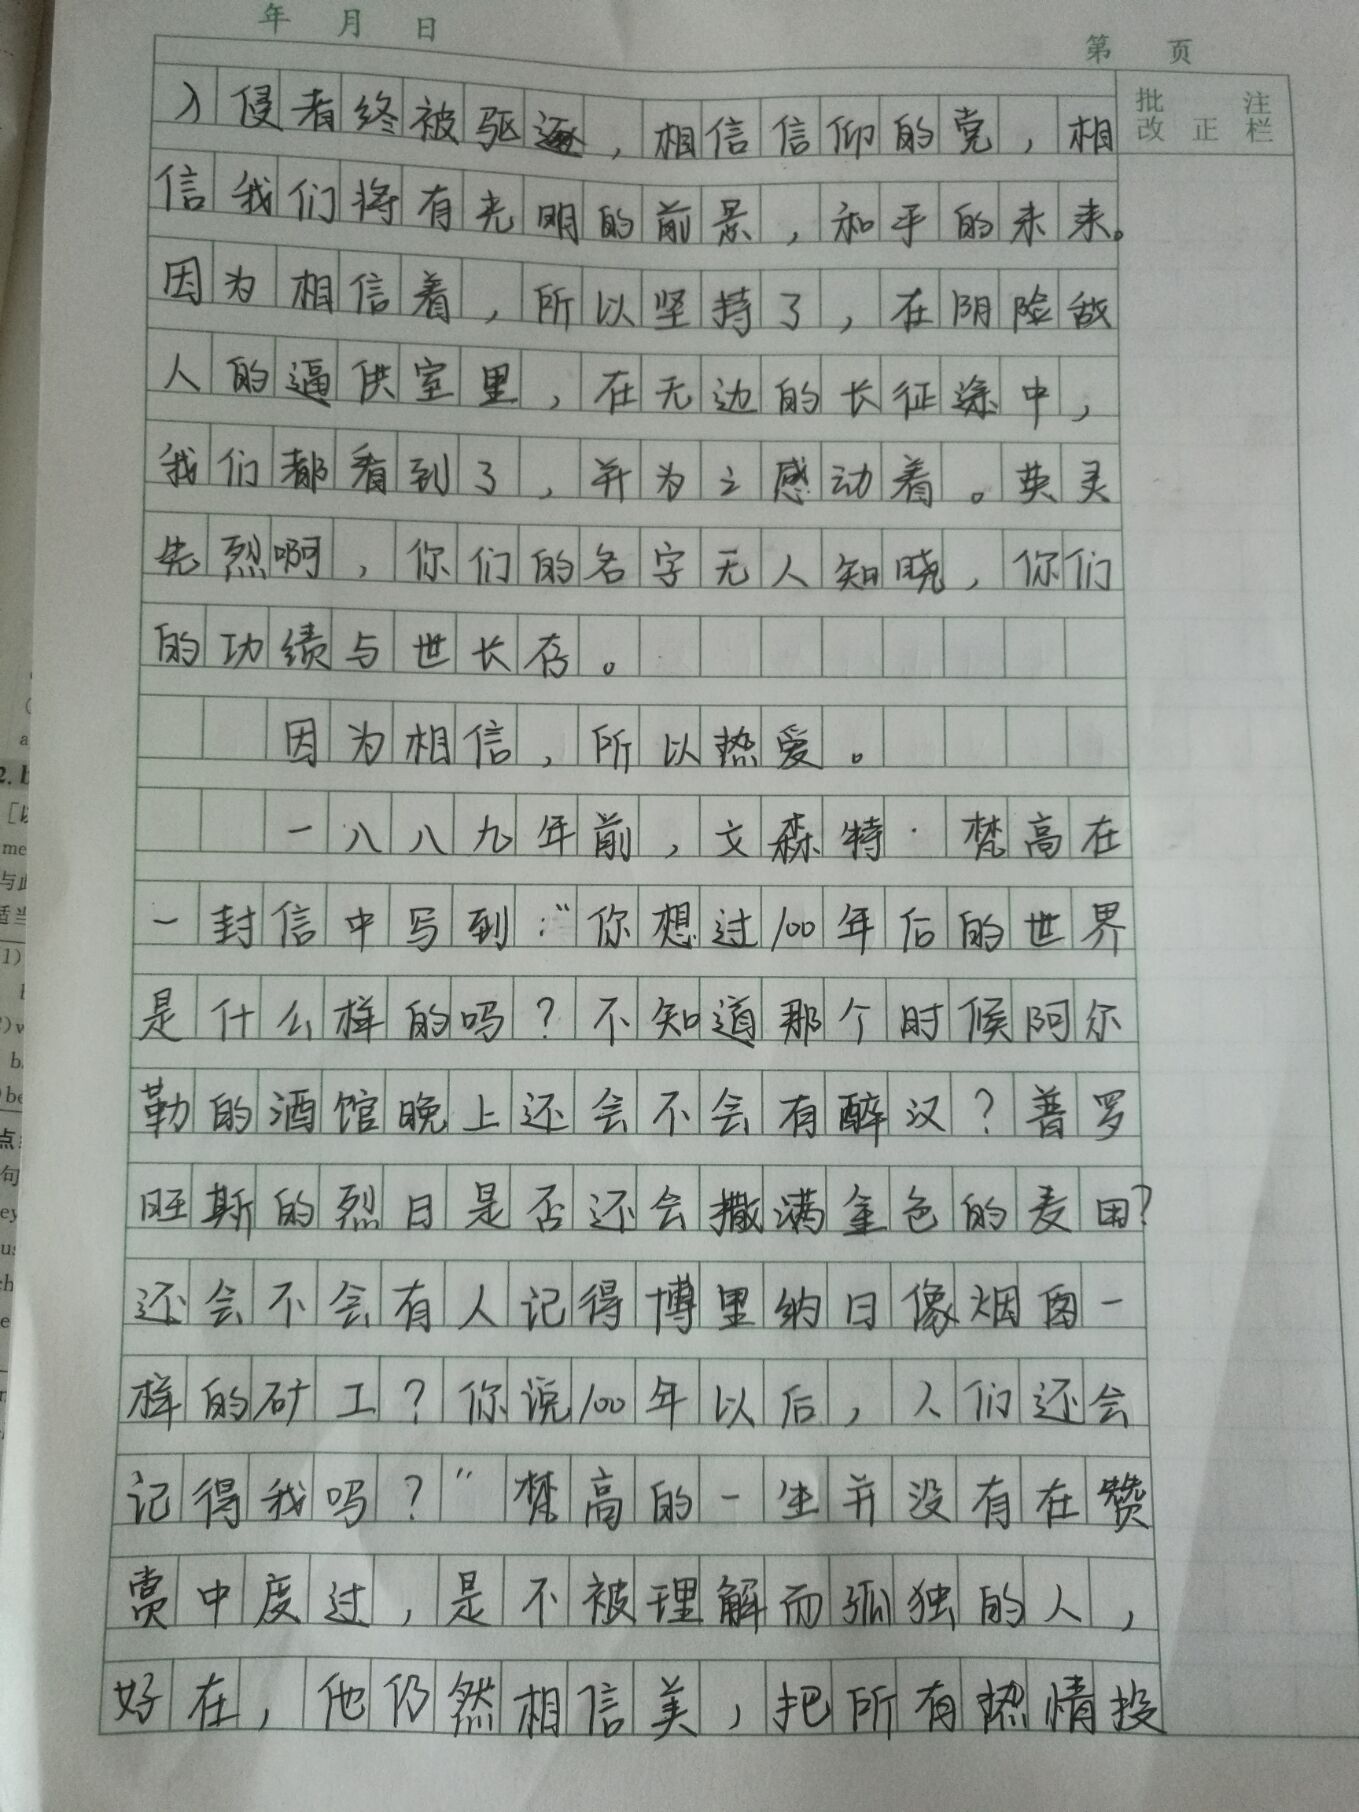 年 月 日
第 页
批 注
改 正 栏
入侵者终被驱逐，相信信仰的党，相
信我们将有光明的前景，和平的未来。
因为相信着，所以坚持了，在阴险敌
人的逼供室里，在无边的长征途中，
我们都看到了，并为之感动着。英灵
先烈啊，你们的名字无人知晓，你们
的功绩与世长存。
因为相信，所以热爱。
一八八九年前，文森特·梵高在
一封信中写到：“你想过100年后的世界
是什么样的吗？不知道那个时候阿尔
勒的酒馆晚上还会不会有醉汉？普罗
旺斯的烈日是否还会撒满金色的麦田？
还会不会有人记得博里纳日像烟囱一
样的矿工？你说100年以后，人们还会
记得我吗？”梵高的一生并没有在赞
赏中度过，是不被理解而孤独的人，
好在，他仍然相信美，把所有热情投